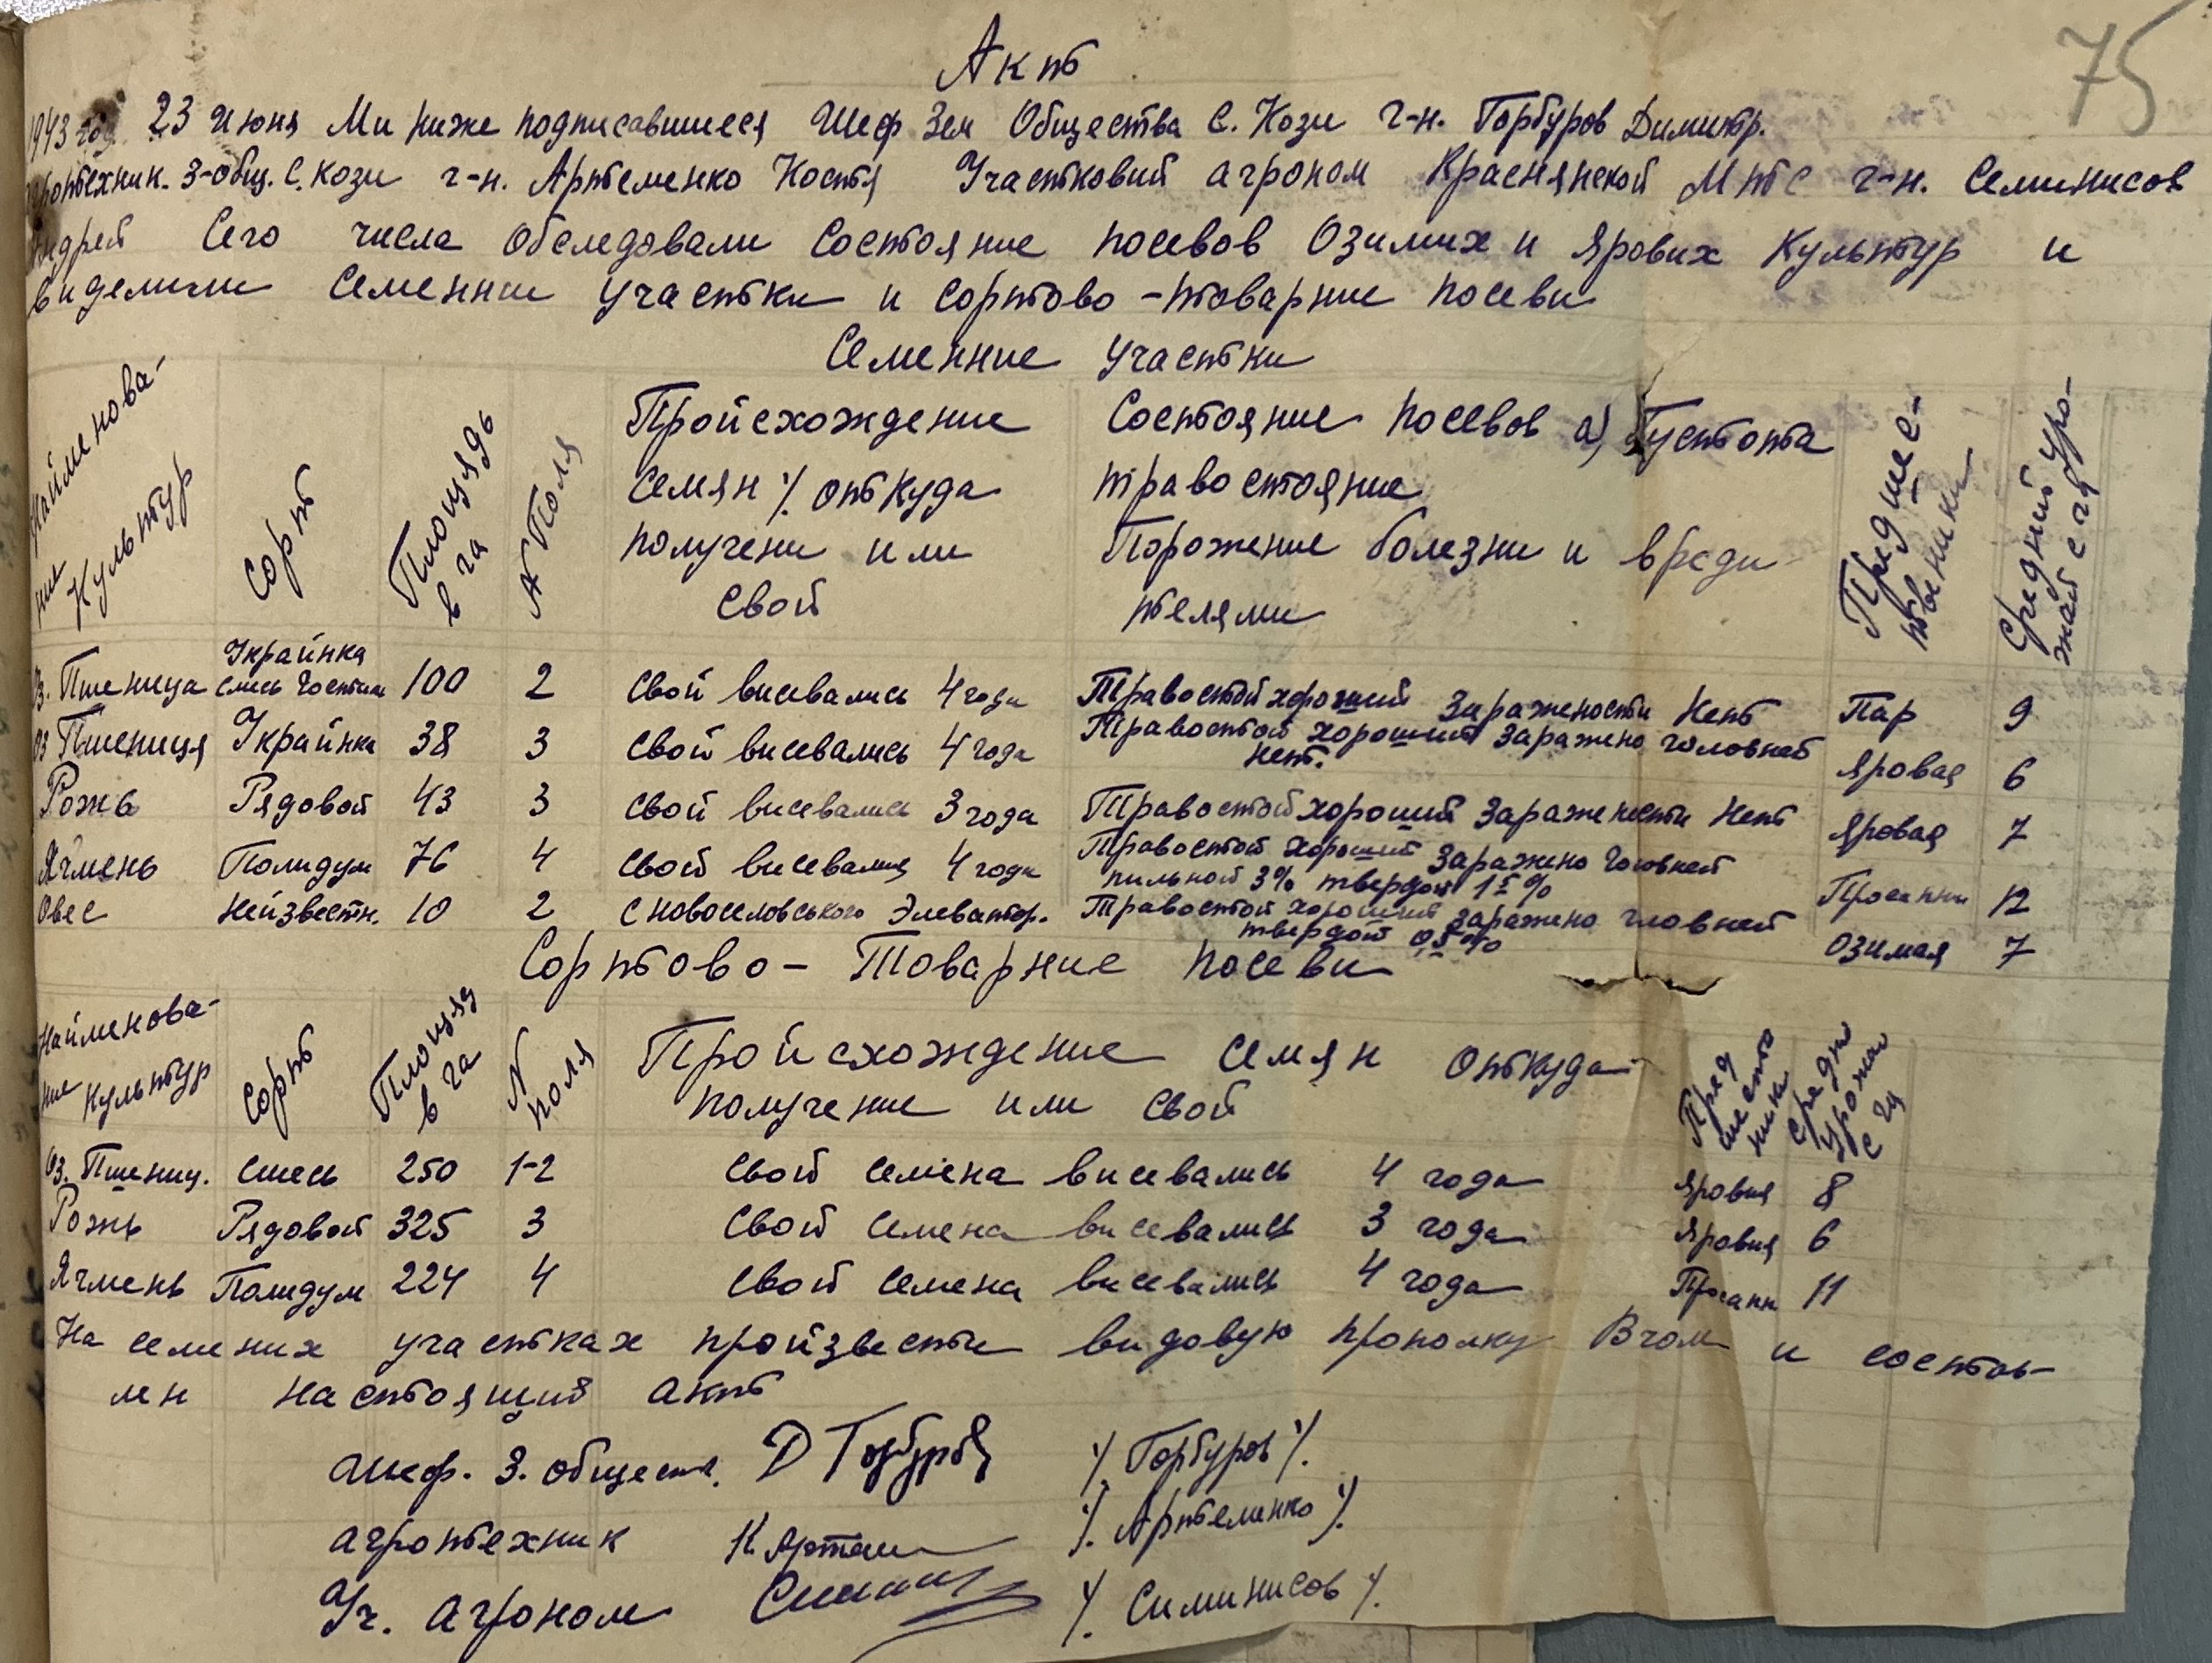 75
Акт
1943 год 23 июня Ми ниже подписавшиеся Шеф Зем Общества С. Кози г-н. Горбуров Димитр.
агротехник. З-общ. С. Кози г-н. Артеменко Костя Участковий агроном Краснянской МТС г-н. Семинисов
Андрей Сего числа обследовали Состояние посевов Озимих и ярових Культур и
виделили Семенние участки и сортово-товарние посеви
Семенние участки
Найменование Культур Сорт Площадь в га № Поля Пройсхождение семян /. откуда получени или свой Состояние посевов а) Густота травостояние Порожение болезни и вредителями Предшественники Средний урожай с га
Оз. Пшеница Украйнка смесь 100 2 свой висевались 4 года Травостой хороший Заражености Нет Пар 9
Оз Пшениця Украйнка 38 3 свой висевались 4 года Травостой хороший заражено головней нет. яровая 6
Рожь Рядовой 43 3 свой висевались 3 года Травостой хороший Зараженести Нет яровая 7
Ячмень Полидум 76 4 свой висевались 4 года Травостой хороший Заражено Головней пильной 3% твердой 1 %
Просапни 12
Овес Нейзвестн. 10 2 с новоселовського Элеватор. Травостой хороший Заражено гловней твердой 0,5 % озимая 7
Сортово-Товарние посеви
Найменование культур Сорт Площад в га № поля Пройсхождение семян откуда получение или свой Предшествники Средни урожай с га
Оз. Пшениц. смесь 250 1-2 свой семена висевались 4 года яровая 8
Рожь Рядовой 325 3 свой семена висевались 3 года яровая 6
Ячмень Полидум 224 4 свой семена висевались 4 года Просапн 11
На семених участках пройзвести видовую прополку В чом и состов-
лен настоящий акт
Шеф. З. обществ. Д Горбуров /. Горбуров /.
агротехник К. Артем /. Артеменко /.
Уч. агроном /. Симинисов /.